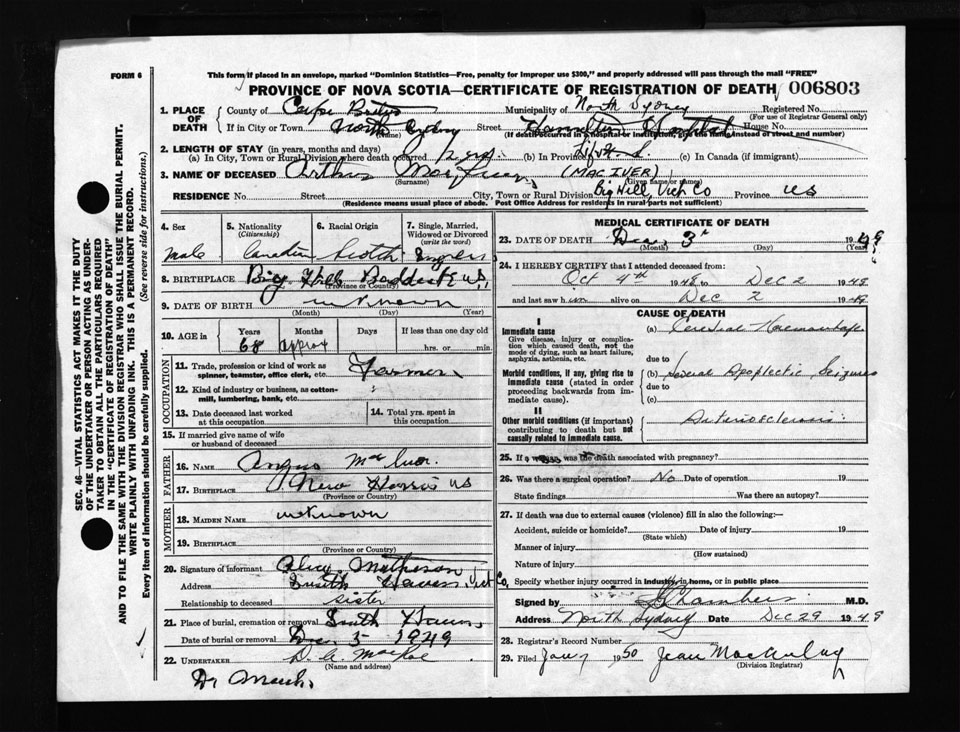 FORM 6
This form if placed in an envelope, marked "Dominion Statistics—Free, penalty for improper use $300," and properly addressed will pass through the mail "FREE"
PROVINCE OF NOVA SCOTIA—CERTIFICATE OF REGISTRATION OF DEATH 006803
1. PLACE OF DEATH
County of Cape Breton Municipality of North Sydney Registered No.
(For use of Registrar General only)
If in City or Town North Sydney Street Hamilton Hospital House No.
(Name) (If death occurred in a hospital or institution, give the name instead of street and number)
2. LENGTH OF STAY (in years, months and days)
(a) In City, Town or Rural Division where death occurred (b) In Province Life (c) In Canada (if immigrant)
3. NAME OF DECEASED Arthur (MAC IVER)
(Surname) (Given name or names)
RESIDENCE No. Street City, Town or Rural Division Big Hill, Vict Co Province NS
(Residence means usual place of abode. Post Office Address for residents in rural parts not sufficient)
4. Sex Male
5. Nationality (Citizenship) Canadian
6. Racial Origin Scotch
7. Single, Married, Widowed or Divorced (write the word) Single
8. BIRTHPLACE Big Hill Baddeck NS
(Province or Country)
9. DATE OF BIRTH unknown
(Month) (Day) (Year)
10. AGE in Years Months Days If less than one day old
68 approx hrs. or min.
OCCUPATION
11. Trade, profession or kind of work as spinner, teamster, office clerk, etc. Farmer
12. Kind of industry or business, as cotton-mill, lumbering, bank, etc.
13. Date deceased last worked at this occupation
14. Total yrs. spent in this occupation
15. If married give name of wife or husband of deceased
FATHER
16. NAME Angus MacIver
17. BIRTHPLACE New Harris NS
(Province or Country)
MOTHER
18. MAIDEN NAME unknown
19. BIRTHPLACE
(Province or Country)
20. Signature of informant Matheson
Address South Haven Vict Co,
Relationship to deceased sister
21. Place of burial, cremation or removal South Haven
Date of burial or removal Dec. 5 1949
22. UNDERTAKER D. A. MacRae
(Name and address)
MEDICAL CERTIFICATE OF DEATH
23. DATE OF DEATH Dec. 3 1949
(Month) (Day) (Year)
24. I HEREBY CERTIFY that I attended deceased from:
Oct 4th 1948 to Dec 2 1949
and last saw him alive on Dec 2 1949
CAUSE OF DEATH
I
Immediate cause
Give disease, injury or complication which caused death, not the mode of dying, such as heart failure, asphyxia, asthenia, etc.
(a) Cerebral Haemorrhage
due to
Morbid conditions, if any, giving rise to immediate cause (stated in order proceeding backwards from immediate cause).
(b) Several Apoplectic Seizures
due to
(c)
II
Other morbid conditions (if important) contributing to death but not causally related to immediate cause.
Arteriosclerosis
25. If a woman, was the death associated with pregnancy?
26. Was there a surgical operation? No Date of operation 19
State findings Was there an autopsy?
27. If death was due to external causes (violence) fill in also the following:—
Accident, suicide or homicide? Date of injury 19
(State which)
Manner of injury
(How sustained)
Nature of injury
Specify whether injury occurred in industry, in home, or in public place
Signed by Chambers M.D.
Address North Sydney Date Dec 29 1949
28. Registrar's Record Number
29. Filed Jan 7 1950 Jean MacAulay
(Division Registrar)
SEC. 46—VITAL STATISTICS ACT MAKES IT THE DUTY
OF THE UNDERTAKER OR PERSON ACTING AS UNDER-
TAKER TO OBTAIN ALL THE PARTICULARS REQUIRED
IN THE "CERTIFICATE OF REGISTRATION OF DEATH"
AND TO FILE THE SAME WITH THE DIVISION REGISTRAR WHO SHALL ISSUE THE BURIAL PERMIT.
WRITE PLAINLY WITH UNFADING INK. THIS IS A PERMANENT RECORD.
Every item of information should be carefully supplied. (See reverse side for instructions.)